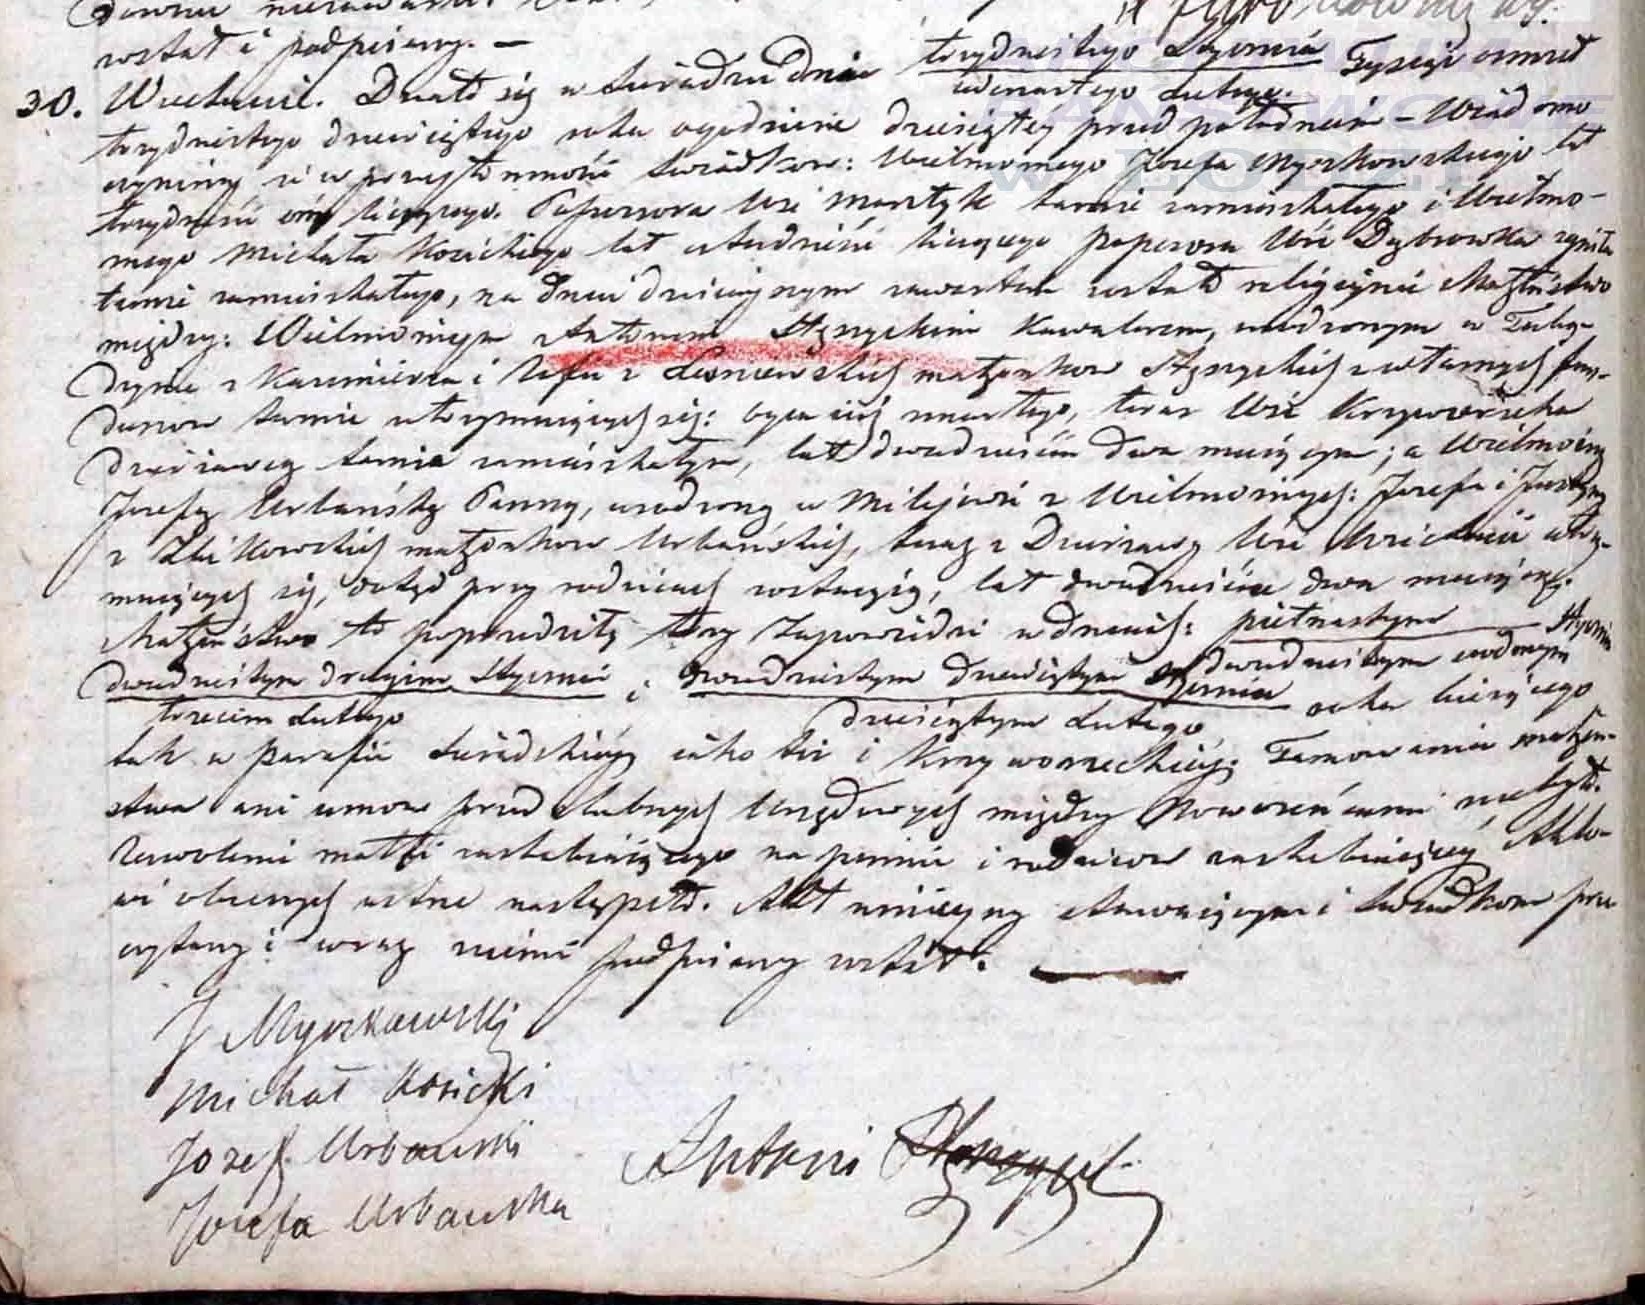 został i podpisany. —
30. Działo się w Sieradzu dnia trzydziestego Stycznia Tysiąc ośmset
jedenastego Lutego.
trzydziestego dziewiątego roku o godzinie dziesiątey przed południem — Wiadomo
czynimy iż w przytomności świadków: Wielmożnego Józefa Myszkowskiego lat
trzydzieści liczącego. Possessora Wsi tamże zamieszkałego i Wielmo-
żnego Michała Kosickiego lat liczącego possesora Wsi Dąbrowka
tamże zamieszkałego, na dniu dzisiejszym zawarte zostało religijnie Małżeństwo
między: Wielmożnym Antonim Kawalerem, urodzonym w
z Kazmierza i Zofii z małżonków z własnych fun-
duszow tamże utrzymujących się: oyca już zmarłego, teraz Wsi Krzyworzeka
dzierżawcą tamże zamieszkałym, lat dwadzieścia dwa mającym; a Wielmożną
Józefą Urbańską Panną, urodzoną w Milejowie z Wielmożnych: Józefa i Justyny
z małżonków Urbańskich, teraz z Dzierżawy Wsi utrzy-
mujących się, dotąd przy rodzicach zostającą, lat dwadzieścia dwa mającą.
Małżeństwo to poprzedziły trzy Zapowiedzi w dniach: piętnastym Stycznia
dwudziestym drugim Stycznia i dwudziestym dziewiątym Stycznia dwudziestym siódmym
trzecim Lutego dziesiątym Lutego roku bieżącego
tak w parafii Sieradzkiey iako też i Krzyworzeckiey; Tamowanie małżeń-
stwa ani umow przedślubnych Urzędowych między Nowożeńcami niebyło.
Zezwolenie matki zaślubiającego na piśmie i rodziców zaślubiającey Akto-
wi obecnych ustne nastąpiło. Akt niniejszy stawającym i świadkom prze-
czytany i wraz niemi podpisany został.
J Myszkowski
Michał Kosicki
Jozef Urbański
Antoni
Jozefa Urbańska